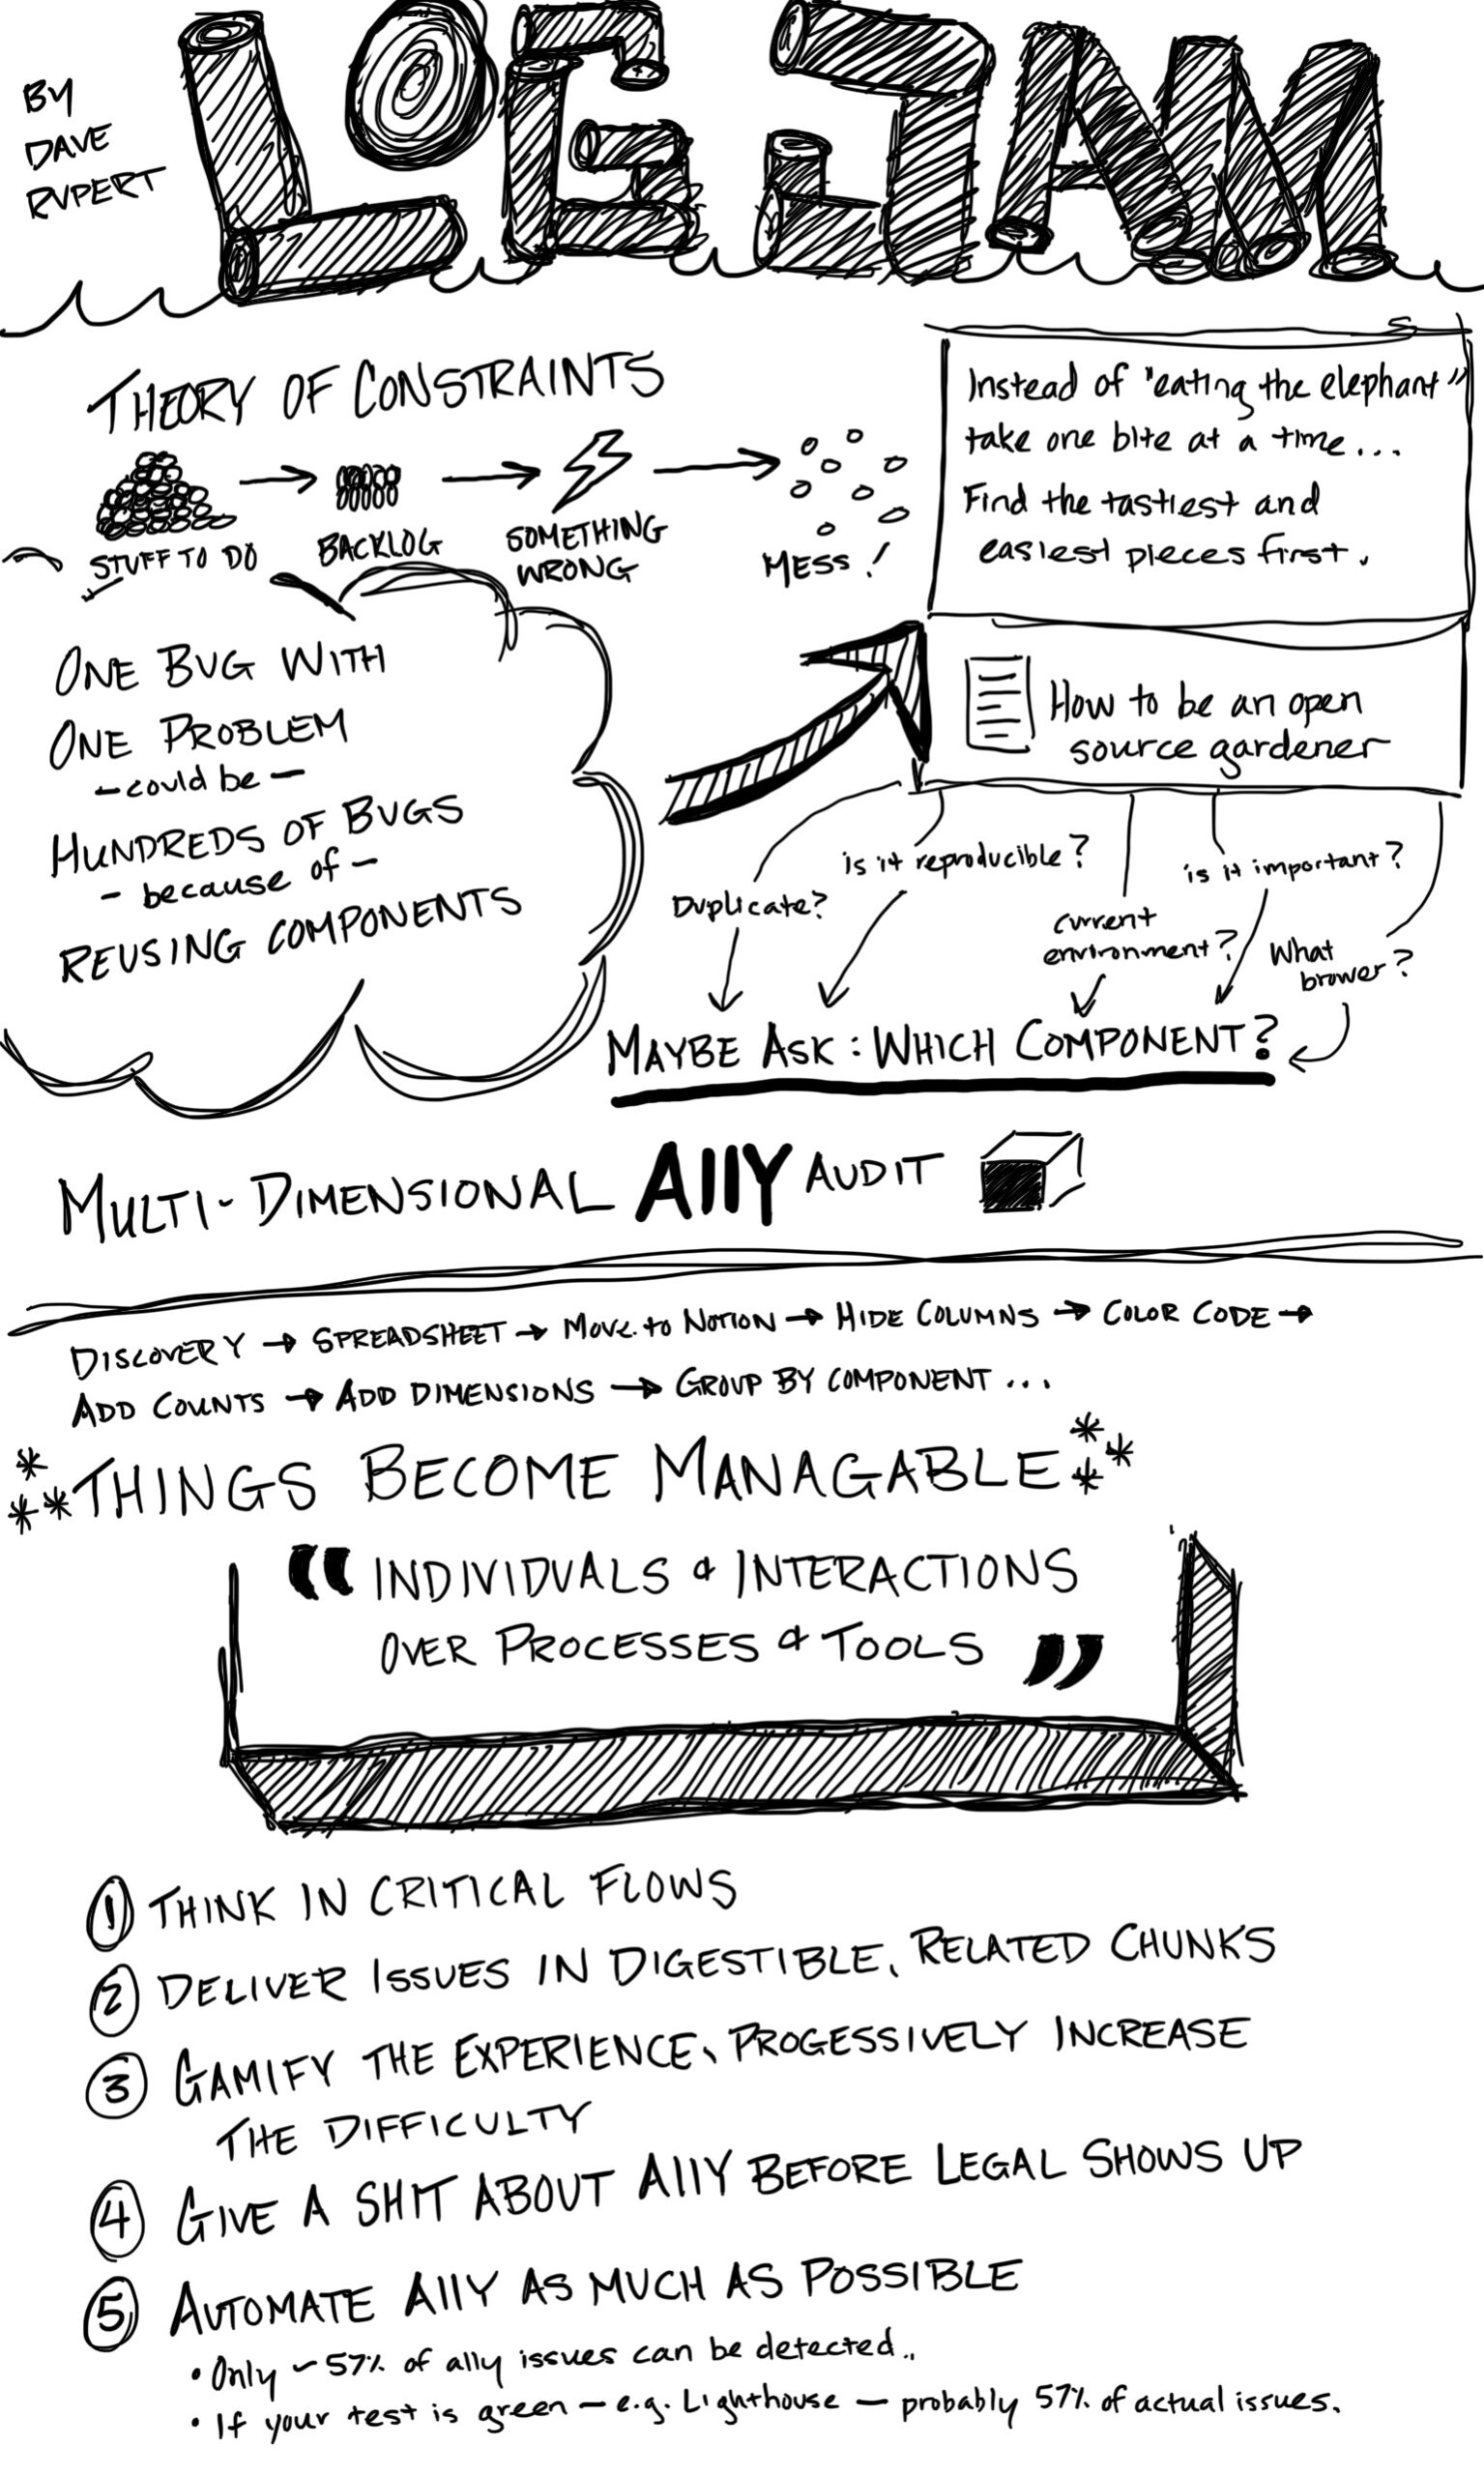 LOGJAM
BY
DAVE
RUPERT
THEORY OF CONSTRAINTS
STUFF TO DO
BACKLOG
SOMETHING
WRONG
MESS!
Instead of "eating the elephant"
take one bite at a time...
Find the tastiest and
easiest pieces first.
How to be an open
source gardener
ONE BUG WITH
ONE PROBLEM
- could be -
HUNDREDS OF BUGS
- because of -
REUSING COMPONENTS
Duplicate?
is it reproducible?
current
environment?
is it important?
What
brower?
MAYBE ASK: WHICH COMPONENT?
MULTI-DIMENSIONAL A11Y AUDIT
DISCOVERY → SPREADSHEET → MOVE TO NOTION → HIDE COLUMNS → COLOR CODE →
ADD COUNTS → ADD DIMENSIONS → GROUP BY COMPONENT...
***THINGS BECOME MANAGABLE***
“INDIVIDUALS & INTERACTIONS
OVER PROCESSES & TOOLS”
1 THINK IN CRITICAL FLOWS
2 DELIVER ISSUES IN DIGESTIBLE, RELATED CHUNKS
3 GAMIFY THE EXPERIENCE, PROGESSIVELY INCREASE
THE DIFFICULTY
4 GIVE A SHIT ABOUT A11Y BEFORE LEGAL SHOWS UP
5 AUTOMATE A11Y AS MUCH AS POSSIBLE
• Only ~57% of a11y issues can be detected..
• If your test is green — e.g. Lighthouse — probably 57% of actual issues.